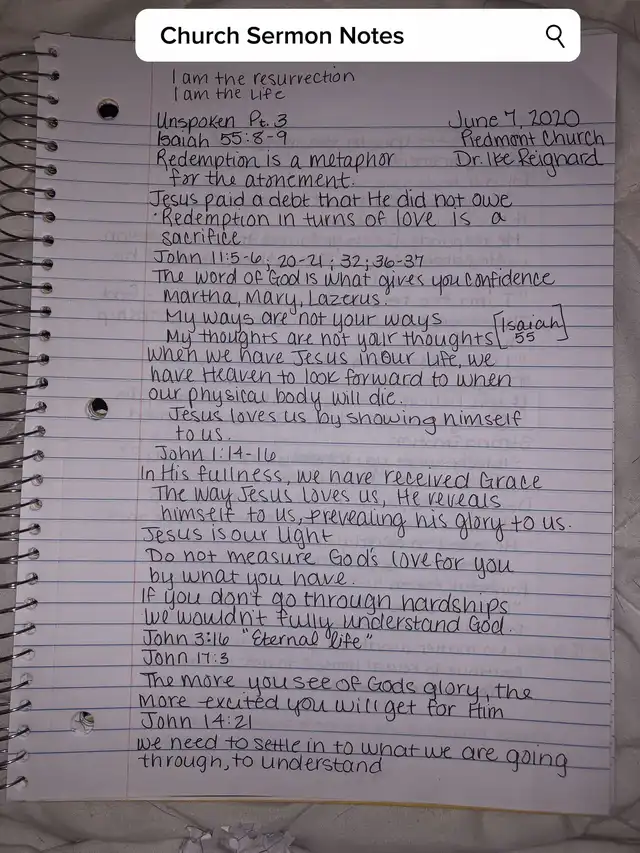 Church Sermon Notes
I am the resurrection
I am the Life
Unspoken Pt. 3 June 7, 2020
Isaiah 55:8-9 Piedmont Church
Redemption is a metaphor Dr. Ike Reignard
for the atonement.
Jesus paid a debt that He did not owe
·Redemption in turns of love is a
sacrifice
John 11:5-6; 20-21; 32; 36-37
The word of God is what gives you confidence
Martha, Mary, Lazerus.
My ways are not your ways
My thoughts are not your thoughts [Isaiah 55]
when we have Jesus in our life, we
have Heaven to look forward to when
our physical body will die.
Jesus loves us by showing himself
to us.
John 1:14-16
In His fullness, we have received Grace
The way Jesus loves us, He reveals
himself to us, prevealing his glory to us.
Jesus is our light
Do not measure God's love for you
by what you have.
If you don't go through hardships
we wouldn't fully understand God.
John 3:16 "Eternal life"
John 17:3
The more you see of Gods glory, the
more excited you will get for Him
John 14:21
we need to settle in to what we are going
through, to understand